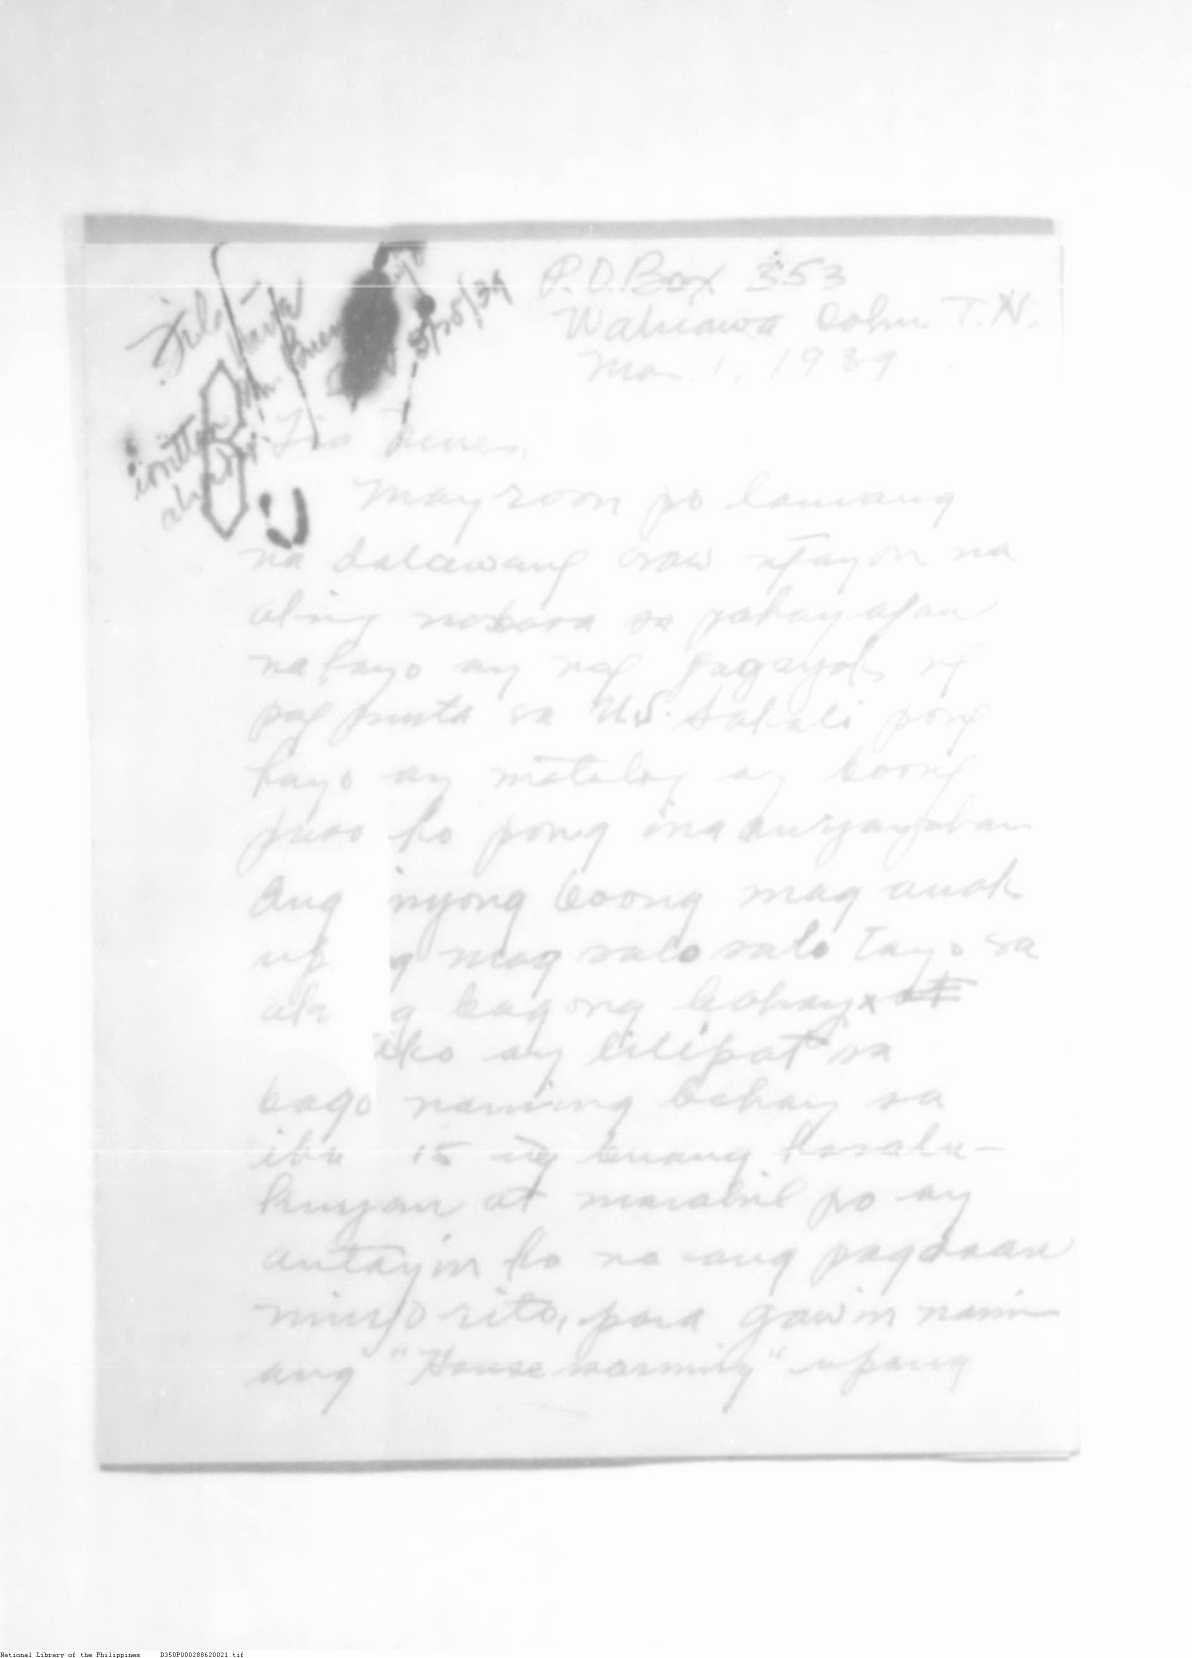 P.O. Box 353
Wahiawa Oahu T.H.
Mar. 1, 1939
5/25/39
written
Mayroon po lamang
na dalawang araw ngayon na
aking nabasa sa pahayagan
na kayo ay nag gagayak ng
pag punta sa U.S. Sakali pong
kayo ay matuloy ay boong
puso ko pong inaanyayahan
ang inyong boong mag anak
up g mag salo salo tayo sa
ak g bagong bahay x at
ako ay lilipat sa
bago naming bahay sa
ika 15 ng buang kasalu-
kuyan at marahil po ay
antayin ko na ang pagdaan
ninyo rito, para gawin namin
ang "House warming" upang
National Library of the Philippines D350P000288620021.tif